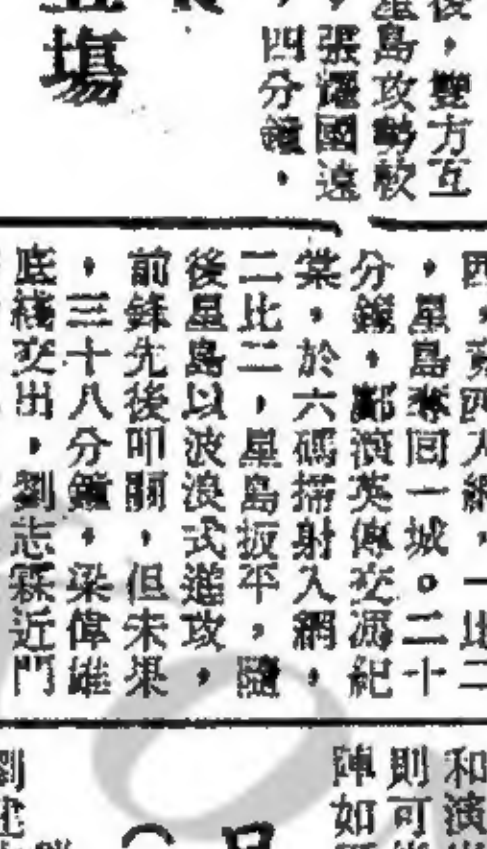 後，雙方互
星島攻勢較
，張耀國遠
，四分鐘，
塲
四，入網，一比二
，星島奪囘一城。二十
分鐘，鄺演英傳交馮紀
棠，於六碼掃射入網，
二比二，星島扳平，隨
後星島以波浪式進攻，
前鋒先後叩關，但未果
，三十八分鐘，梁偉雄
底綫交出，劉志霖近門
和演
則可
陣如
劉